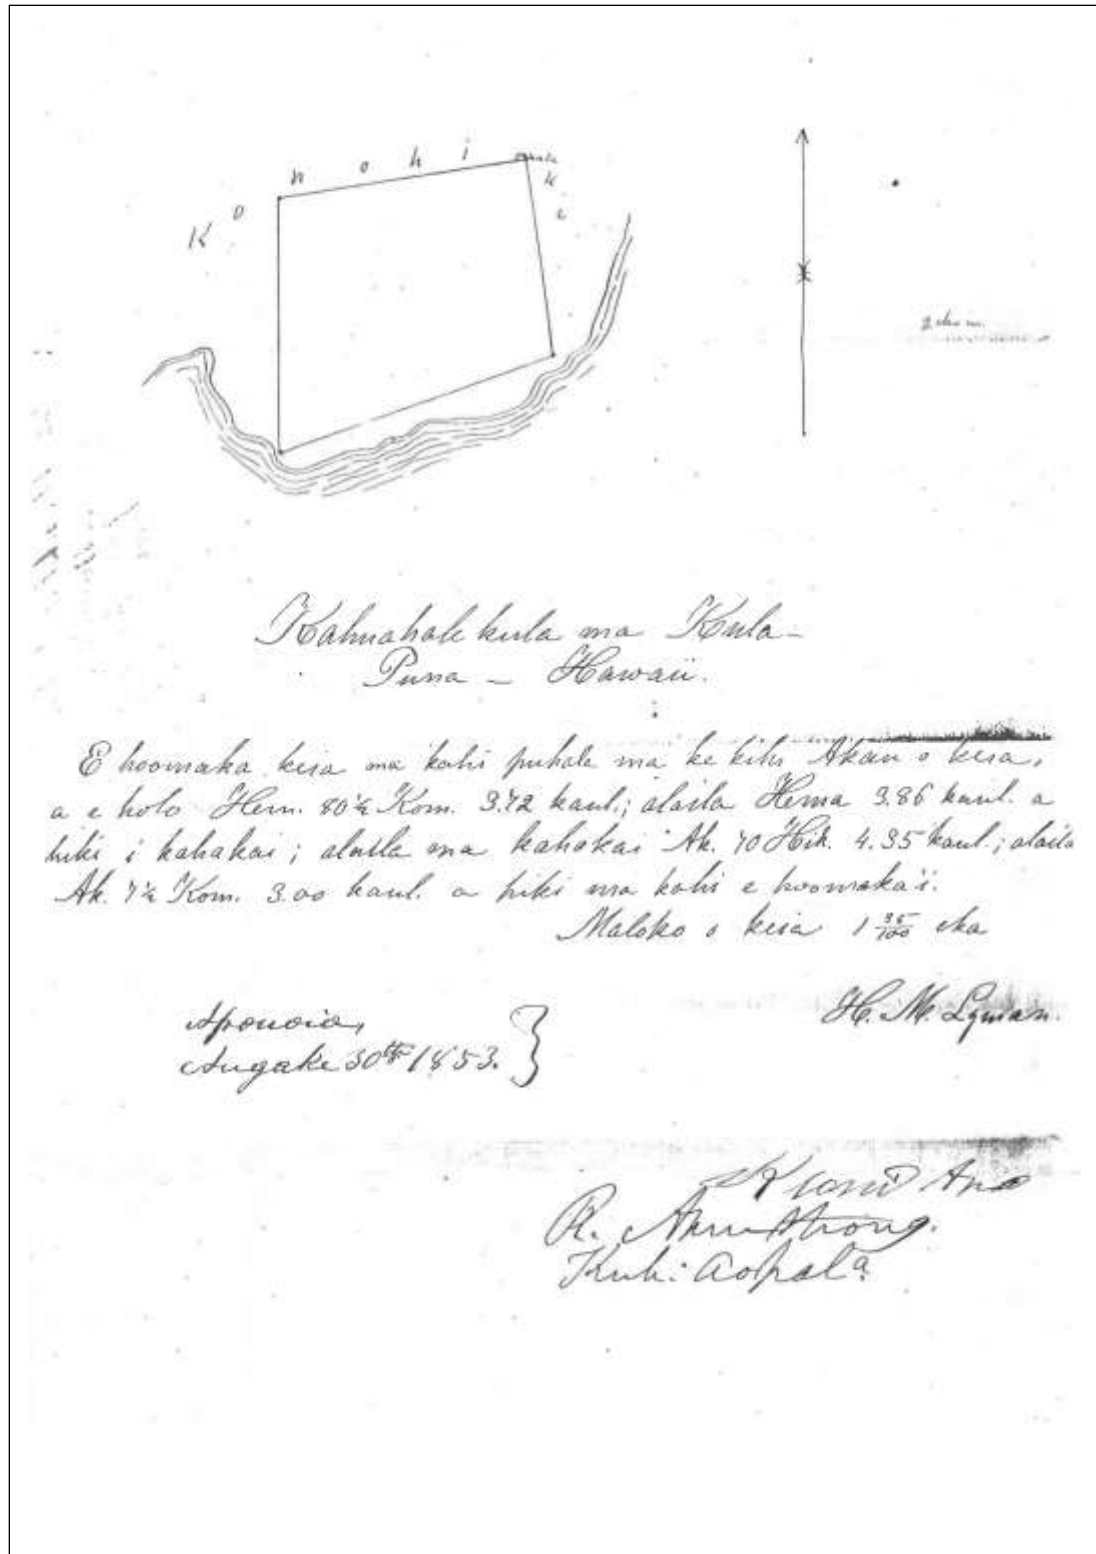 K o n o h i k i
2 chain.
Kahuahale kula ma Kula -
Puna - Hawaii.
E hoomaka keia ma kahi puhala ma ke kihi Akau o keia,
a e holo Hem. 80½ Kom. 3.72 kaul.; alaila Hema 3.86 kaul. a
hiki i kahakai; alaila ma kahakai Ak. 70 Hik. 4.35 kaul.; alaila
Ak. 7½ Kom. 3.00 kaul. a hiki ma kahi e hoomaka'i.
Maloko o keia 1 35/100 eka
H. M. Lyman.
Aponoia,
Augake 30th 1853.
R. Armstrong.
Kuhi: